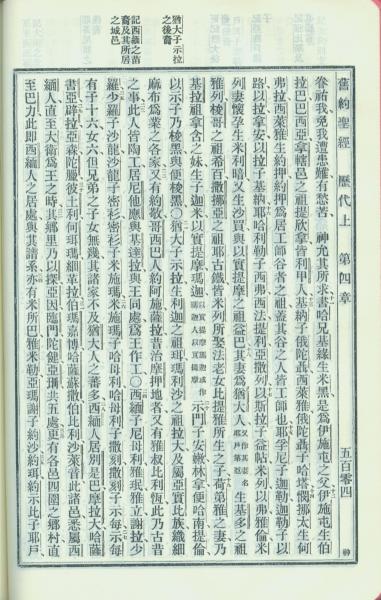 舊約聖經 歷代上 第四章 五百零四
眷祐我免我遭患難有愁苦 神允其所求書哈兄基綠生米黑是為伊施屯之父伊施屯生伯
拉巴巴西亞拿轄邑之祖提欣拿皆利甲人基納子俄陀聶西萊雅俄陀聶子哈塔憫挪太生何
弗拉西萊雅生約押約押為居工師谷者之祖蓋其谷之人皆工師也耶孚尼子迦勒迦勒子以
路以拉拿安以拉子基納耶哈利勒子西弗西法提利亞撒列以斯拉子益帖米列以弗雅倫米
列妻懷孕生米利暗又生沙買與以實提摩之祖益巴其妻為猶大人又作其妻名耶戶第雅生基多之祖
雅列梭哥之祖希百撒挪亞之祖耶古鐵皆米列所娶法老女比提雅所生之子荷第雅之妻乃
基拉祖拿含之妹生子迦米以實提摩瑪迦示門子安嫩林拿便哈南提倫
以示子乃梭黑與便梭黑〇猶大子示拉生利迦之祖珥瑪利沙之祖拉大及屬亞實比族織細
麻布為業之各家又有約敬哥西巴人約阿施薩拉昔治摩押地者又有雅叔比利恆此乃古昔
之事此人皆陶工居尼他應與基達拉與王同處為王作工〇西緬子尼母利雅珉雅立謝拉少
羅少羅子沙龍沙龍子密衫密衫子米施瑪米施瑪子哈母利哈母利子撒刻撒刻子示每示每
有子十六女六但兄弟之子女無幾其諸家不及猶大人之蕃多西緬人居別是巴摩拉大哈薩
書亞辟拉亞森陀臘彼土利何珥瑪細革拉伯瑪嘉博哈薩蘇撒伯比利沙萊音此諸邑悉屬西
緬人直至大衛為王之時其鄉里乃以探亞因臨門陀健亞珊共五處更有各邑四圍之鄉村直
至巴力此即西緬人之居處與其譜系亦有米所巴雅米勒亞瑪謝子約沙約珥約示比子耶戶
猶大子示拉
之後裔
記西緬之苗
裔及其所居
之城邑